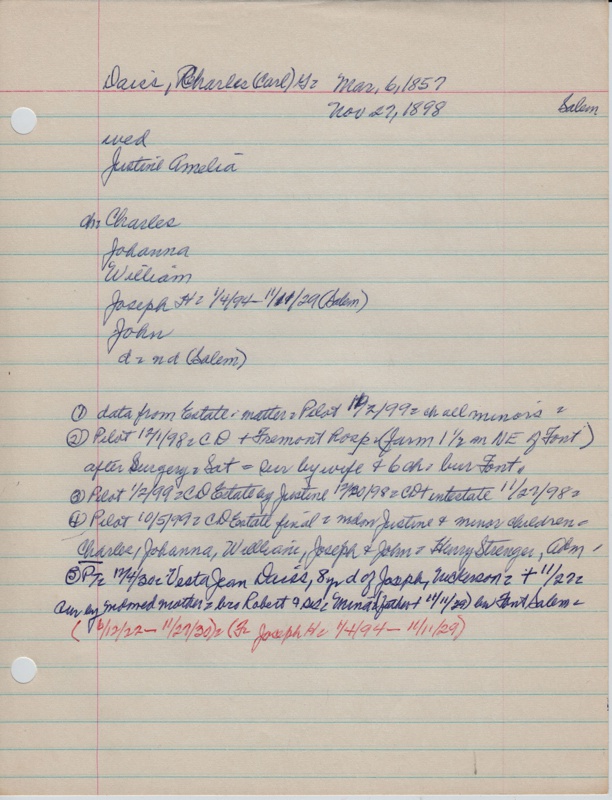 Daiss, Charles (Carl) G= Mar, 6, 1857
Nov 27, 1898 Salem
wed
Justine Amelia
ch= Charles
Johanna
William
Joseph H= 1/4/94 - 11/11/29 (Salem)
John
d = nd (Salem)
① data from Estate matter = Pilot /2/99 = ch all minors =
② Pilot 12/1/98 = CD + Fremont Hosp. (farm 1 1/2 m NE of Font)
after Surgery = Sat = sur by wife & 6 ch = bur Font.
③ Pilot 1/2/99 = CD Estate by Justine 12/30/98 = CD+ intestate 11/27/98 =
④ Pilot 10/5/99 = CD Estate final = mdm Justine & minor children =
Charles, Johanna, William, Joseph & John = Henry Strenger, Adm.
⑤ P= 12/4/30 = Vesta Jean Daiss, 8 yr d of Joseph, Nickerson = + 11/27 =
sur by mdmed mother = bro Robert & sis = (father + 11/11/29) bur Font Salem =
(6/12/22 - 11/27/30) = (F= Joseph H= 1/4/94 - 11/11/29)